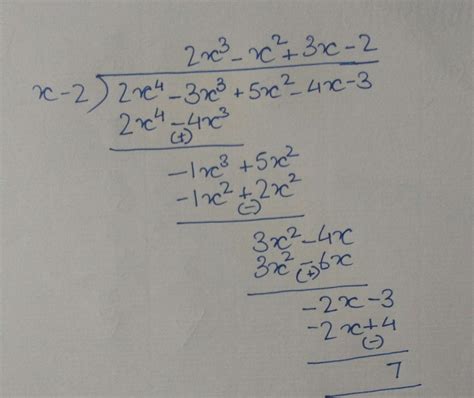 2x³ - x² + 3x - 2
x - 2 ) 2x⁴ - 3x³ + 5x² - 4x - 3
2x⁴ - 4x³
(+)
-1x³ + 5x²
-1x² + 2x²
(-)
3x² - 4x
3x² - 6x
(+)
-2x - 3
-2x + 4
(-)
7